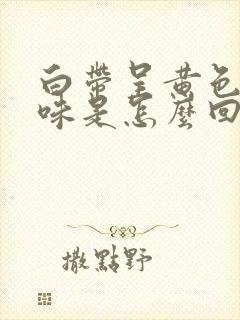 白帶呈黃色
味是怎麼回
撒點野